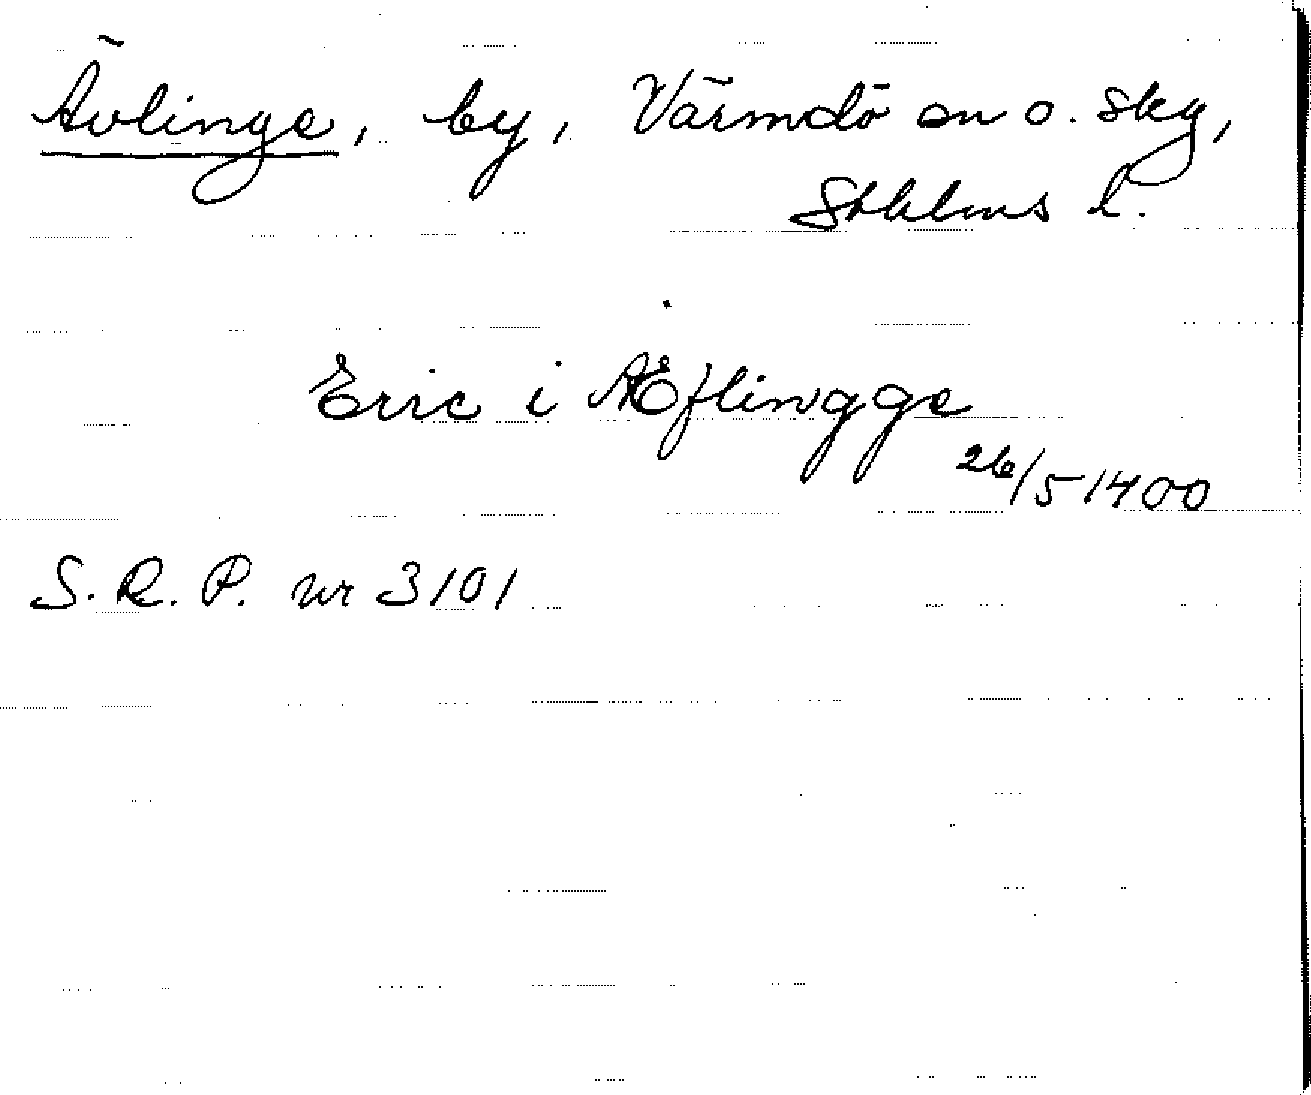 Ävlinge, by, Värmdö sn o. skg,
Sthlms l.
Eric i Æflingge
26/5 1400
S. R. P. nr 3101